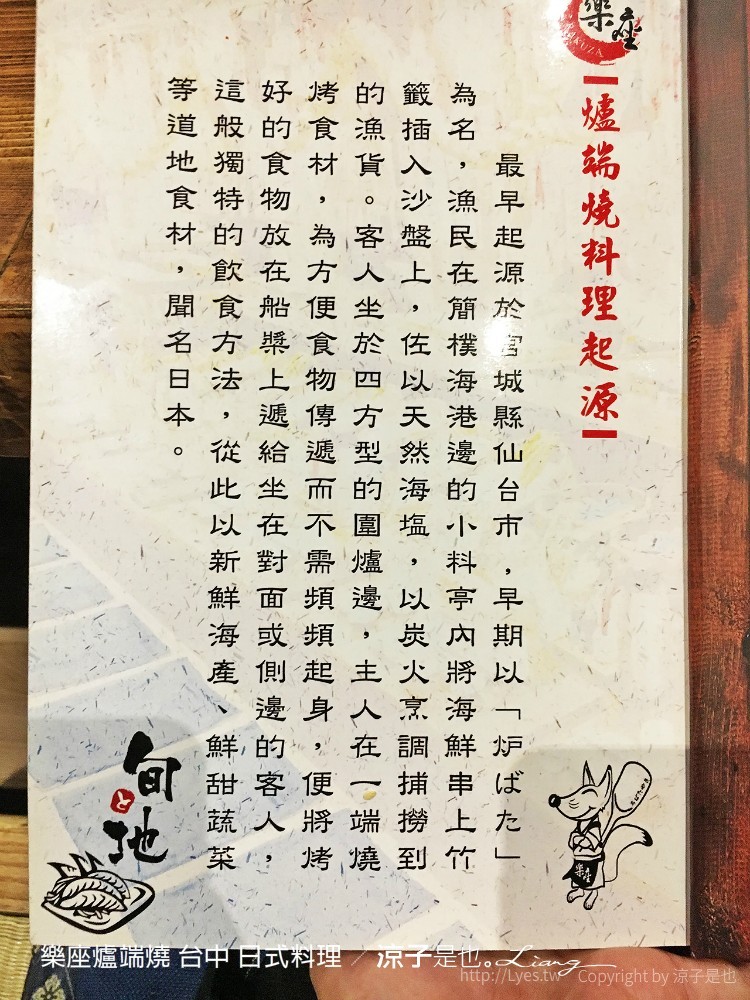 樂座
KUZA
爐端燒料理起源
最早起源於宮城縣仙台市，早期以「炉ばた」
為名，漁民在簡樸海港邊的小料亭內將海鮮串上竹
籤插入沙盤上，佐以天然海塩，以炭火烹調捕撈到
的漁貨。客人坐於四方型的圍爐邊，主人在一端燒
烤食材，為方便食物傳遞而不需頻頻起身，便將烤
好的食物放在船槳上遞給坐在對面或側邊的客人，
這般獨特的飲食方法，從此以新鮮海產、鮮甜蔬菜
等道地食材，聞名日本。
旬と地
樂座
樂座爐端燒 台中 日式料理 ／ 涼子是也。Liang
http://Lyes.tw Copyright by 涼子是也